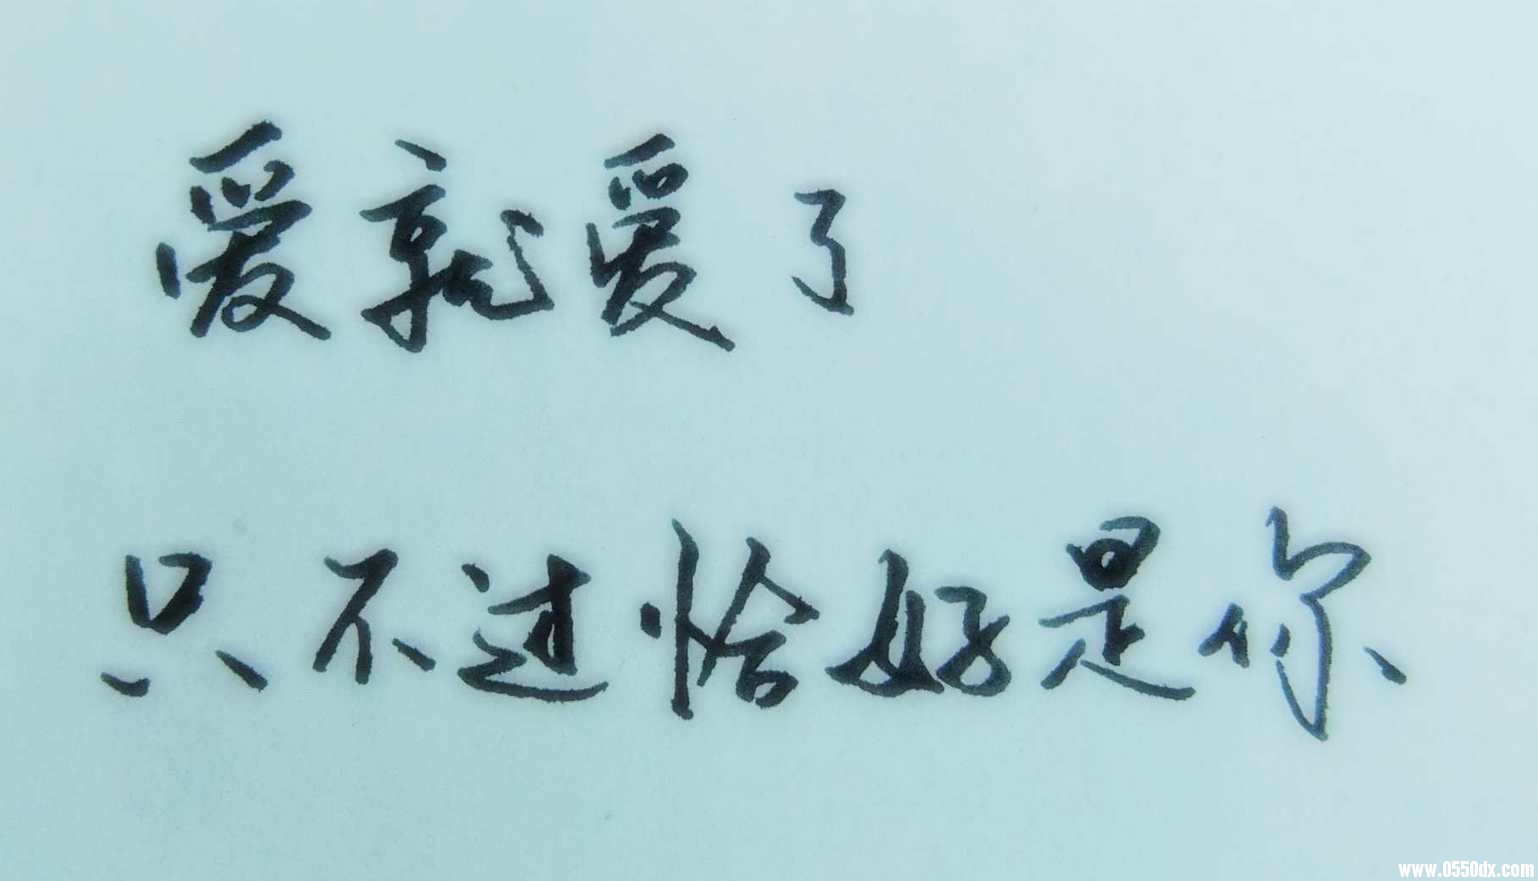 爱就爱了
只不过恰好是你
www.0550dx.com